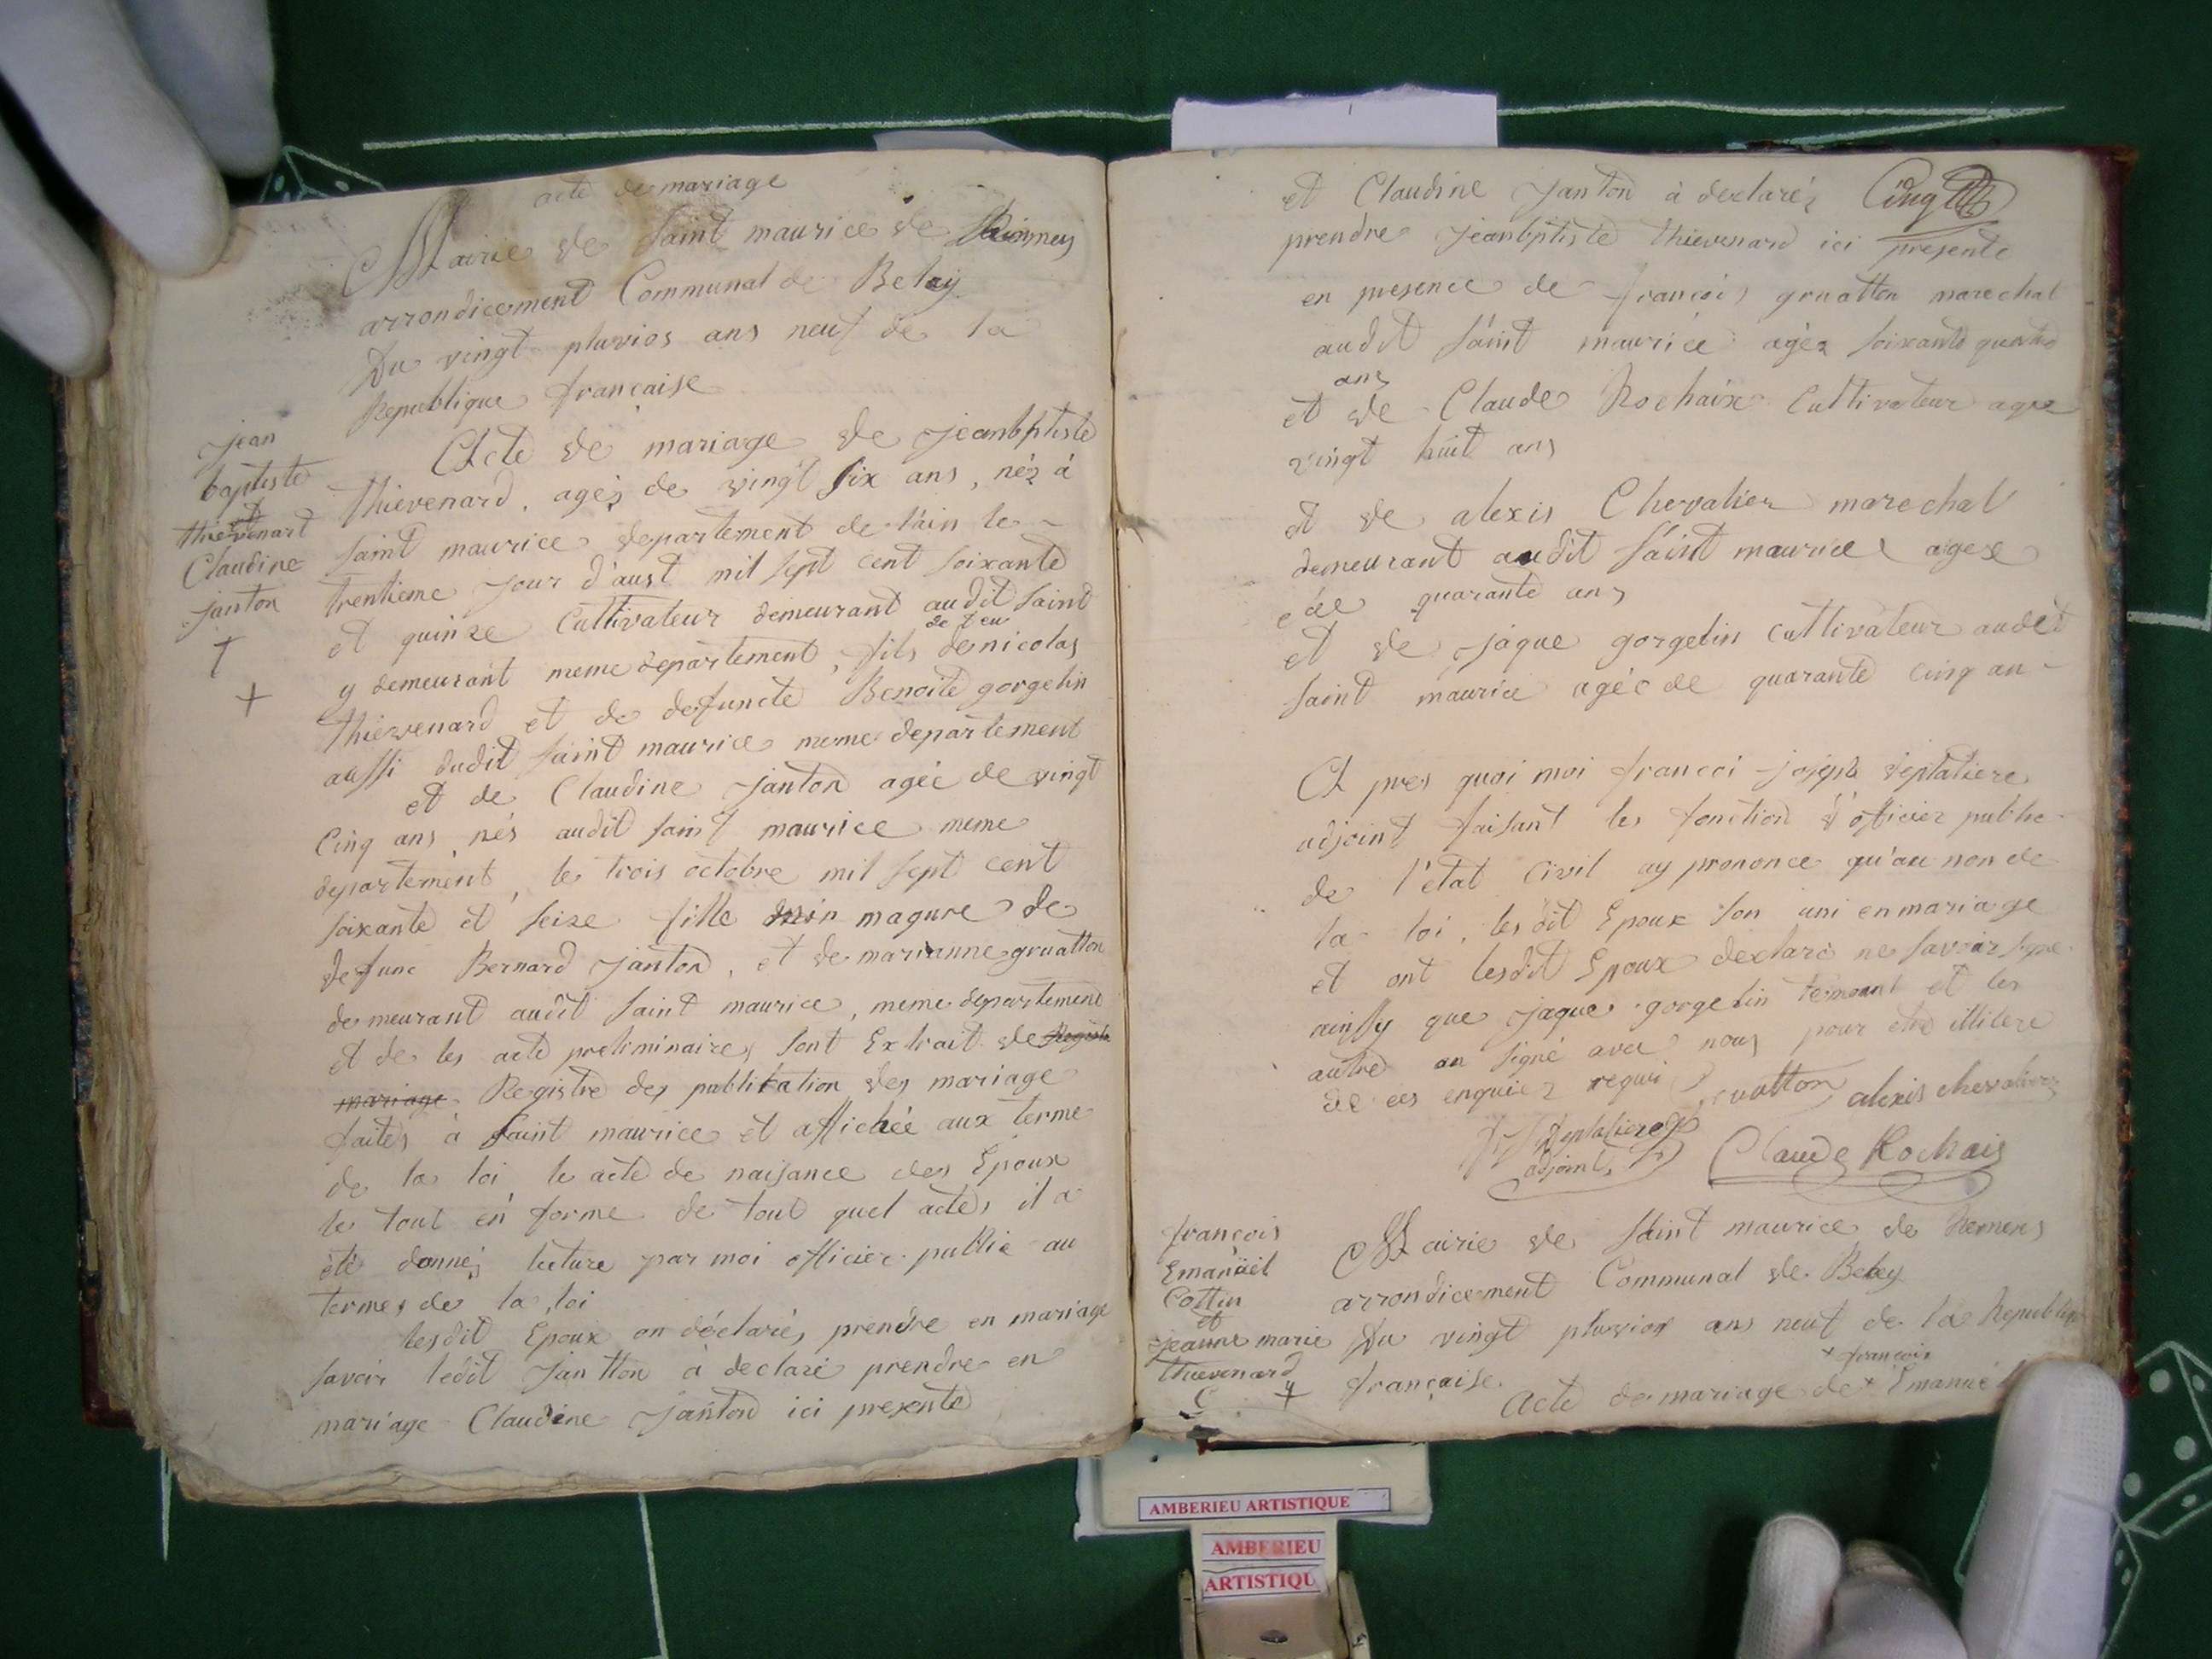 acte de mariage
Mairie de Saint maurice de Remney
arrondicement Communal de Beley
Du vingt pluvios ans neuf de la
Republique francaise
jean
baptiste
thievenart
et
Claudine
janton
Acte de mariage de jeanbptiste
thievenard, agez de vingt six ans, néz à
saint maurice departement de l'ain le
trentieme jour d'aust mil sept cent soixante
et quinze Cultivateur demeurant audit saint
y demeurant meme departement, fils de nicolas
thievenard et de defuncte Benoite gorgelin
aussi dudit saint maurice meme departement
et de Claudine janton agée de vingt
Cinq ans nés audit saint maurice meme
departement, le trois octobre mil sept cent
soixante et seize fille magure de
defunc Bernard janton, et de marianne gruatton
demeurant audit saint maurice, meme departement
et de les acte preliminaires sont Extrait de Registre
mariage Registre des publikation des mariage
faites à saint maurice et affichée aux terme
de la loi le acte de naisance des Epoux
le tout en forme de tout quel actes il a
été donnés lecture par moi officier public au
termes de la loi
lesdit Epoux on déclarés prendre en mariage
savoir ledit jantton à declaré prendre en
mariage Claudine janton ici presente
et Claudine janton à declaréz Cinq
prendre jeanbptiste thievenard ici presente
en presence de francois gruatton marechal
audit saint maurice agéz soixante quatre
ans
et de Claude Rochaix Cultivateur agez
vingt huit ans
et de alexis Chevalier marechal
demeurant audit saint maurice agez
de quarante ans
et de jaque gorgelin cultivateur audit
saint maurice agée de quarante cinq an
A pres quoi moi francoi joseph deplatiere
adjoint faisant les fonction d'officier public
de l'état civil ay prononce qu'au non de
la loi, lesdit Epoux son uni en mariage
et ont lesdit Epoux declaré ne savoir signe
ainssy que jaque gorgelin temoant et les
autre on signé avec nous pour etre illitere
de ces enquiez requi gruatton alexis chevalier
Deplatiere
adjoint Claude Rochais
françois
Emanüel
Cottin
et
jeanne marie
thievenard
Mairie de saint maurice de Remens
arrondicement Communal de Beley
Du vingt pluvios ans neuf de la Republique
française.
+ francois
Acte de mariage de + Emanuel
AMBERIEU ARTISTIQUE
AMBERIEU
ARTISTIQU